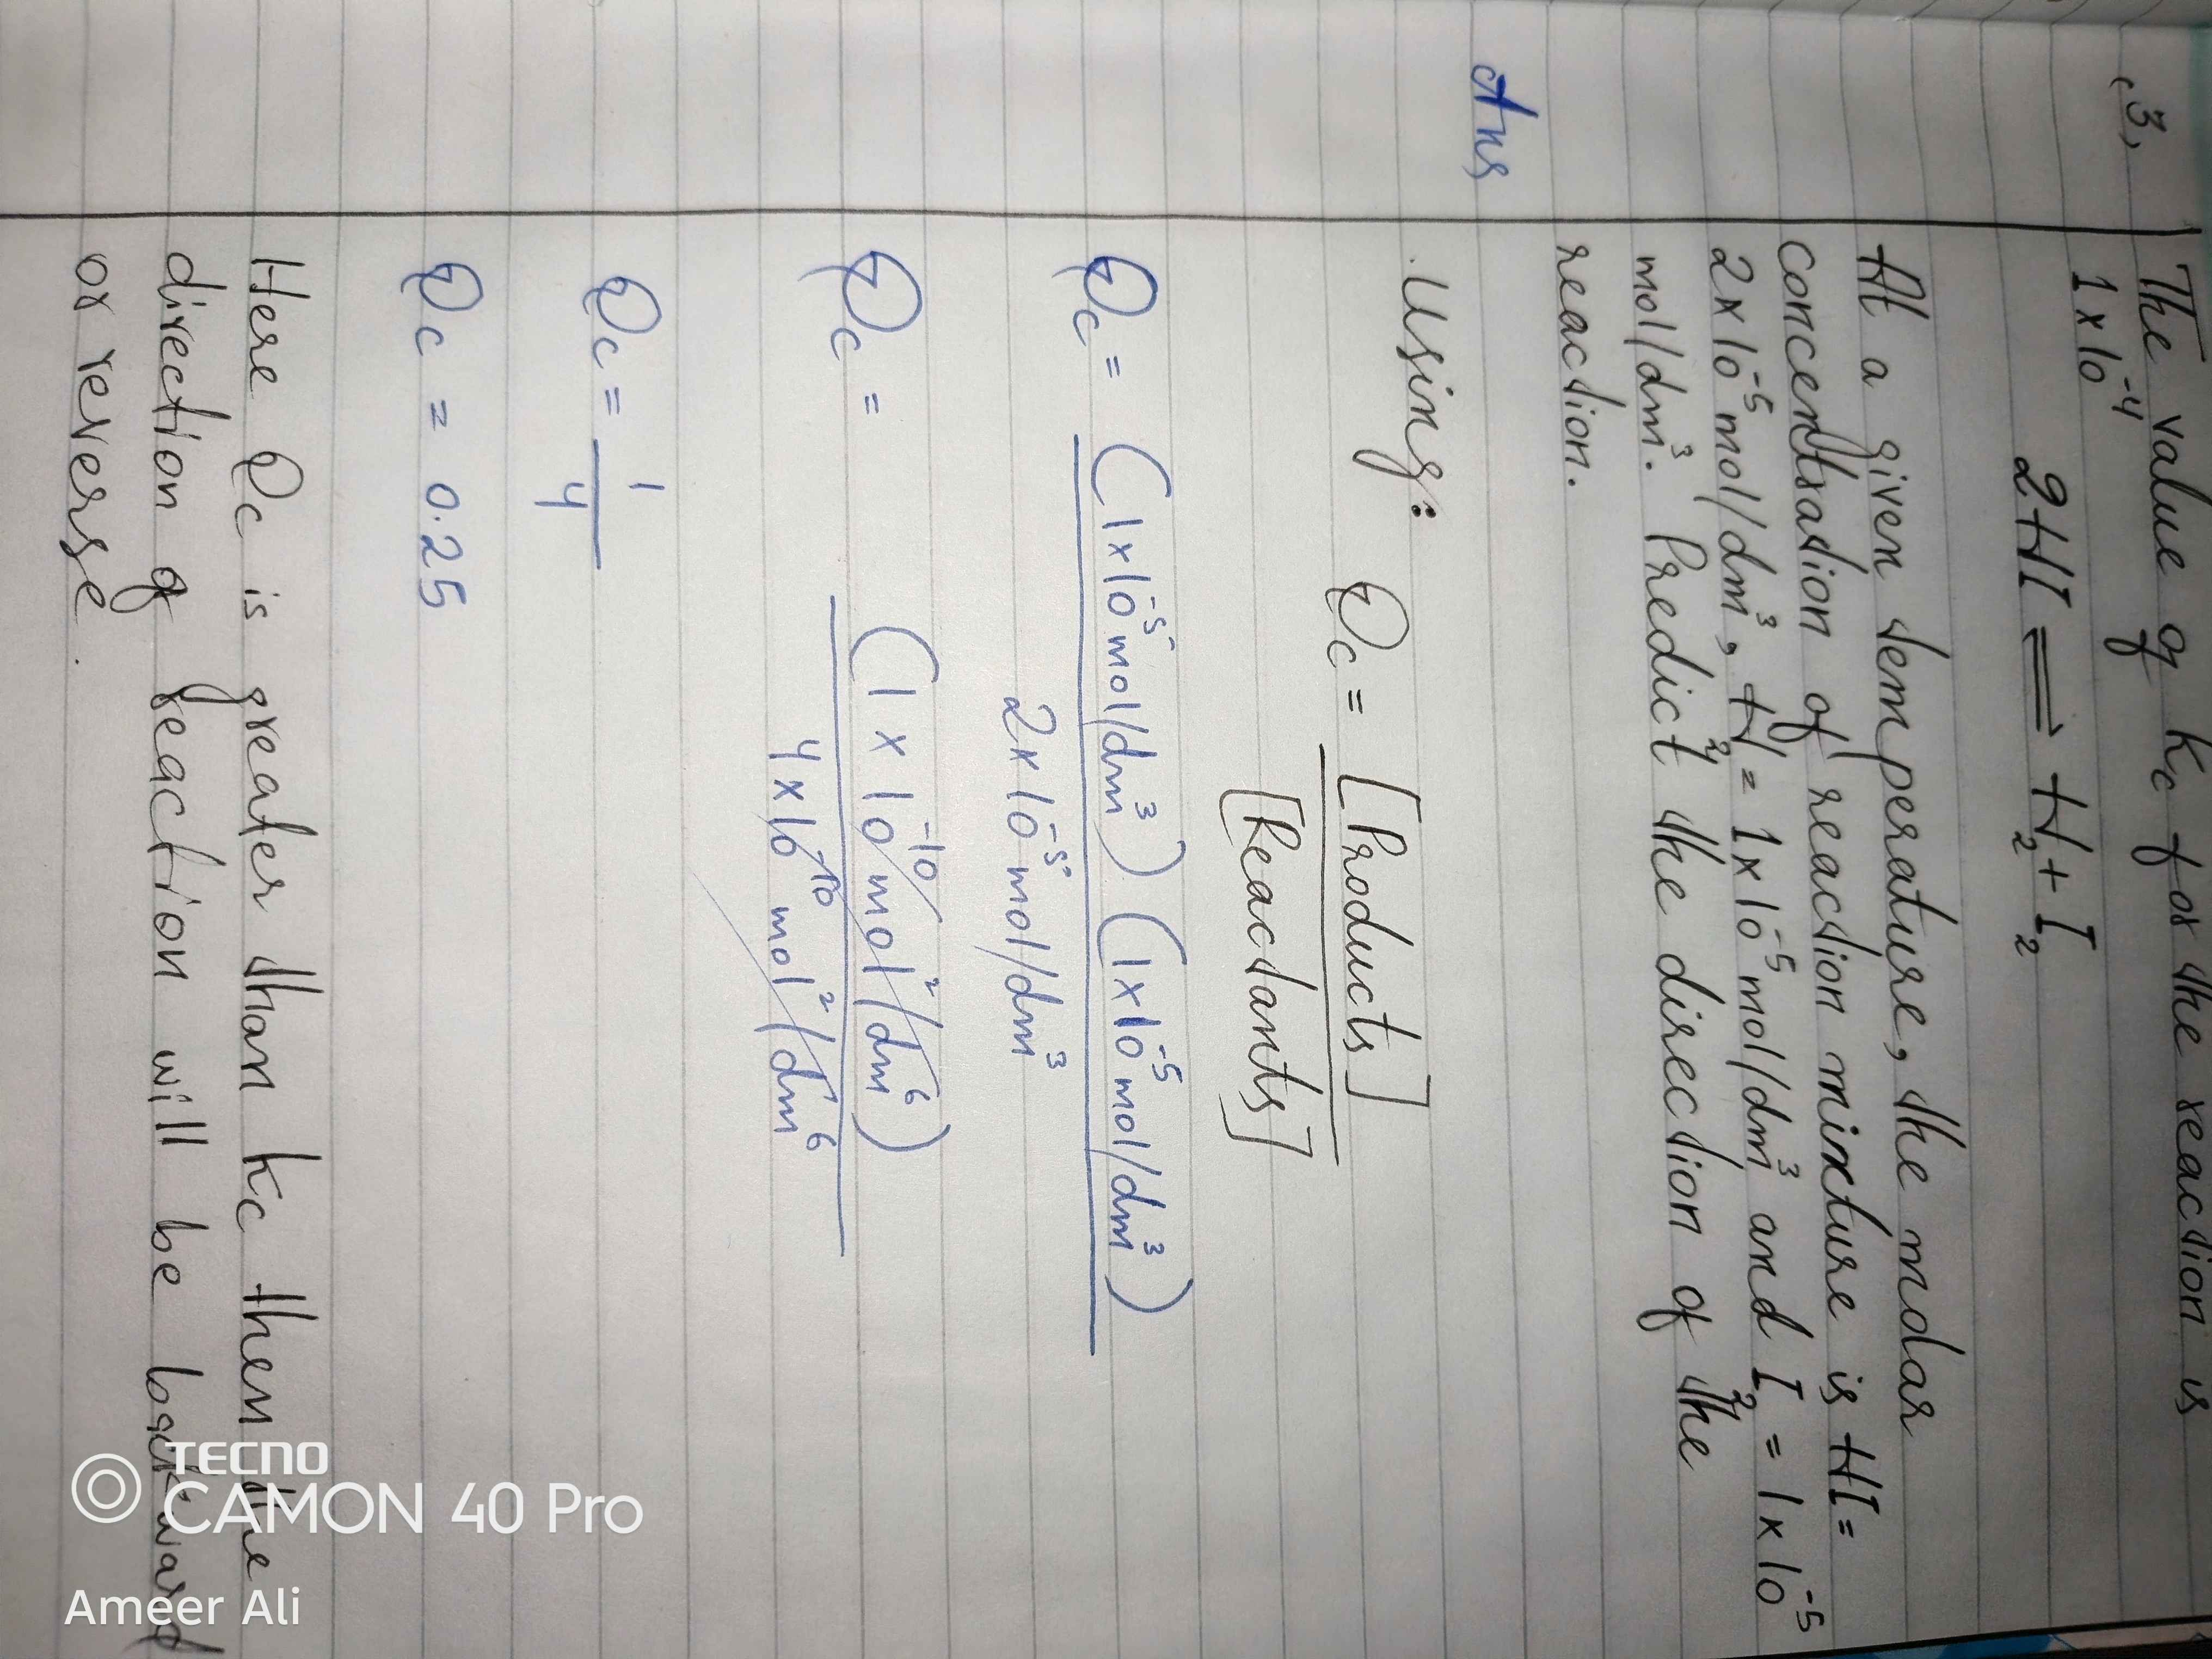 (3) The value of Kc for the reaction is
1 × 10⁻⁴
2HI ⇌ H₂ + I₂
At a given temperature, the molar
concentration of reaction mixture is HI =
2 × 10⁻⁵ mol/dm³, H₂ = 1 × 10⁻⁵ mol/dm³ and I₂ = 1 × 10⁻⁵
mol/dm³. Predict the direction of the
reaction.
Ans
Using:
Qc = [Products] / [Reactants]
Qc = (1×10⁻⁵ mol/dm³) (1×10⁻⁵ mol/dm³) / 2×10⁻⁵ mol/dm³
Qc = (1 × 10⁻¹⁰ mol²/dm⁶) / 4×10⁻¹⁰ mol²/dm⁶
Qc = 1/4
Qc = 0.25
Here Qc is greater than Kc then the
direction of reaction will be backward
or reverse.
TECNO
CAMON 40 Pro
Ameer Ali